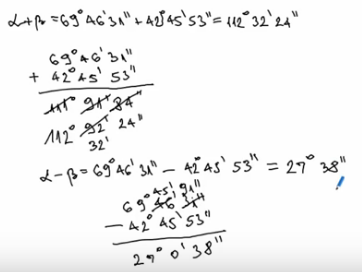 α+β=69°46'31"+42°45'53"=112°32'24"
69°46'31"
+ 42°45'53"
111° 91' 84"
112° 92' 24"
32'
α-β=69°46'31" - 42°45'53" = 27° 38"
45' 91"
69° 46' 31"
- 42°45'53"
27° 0' 38"